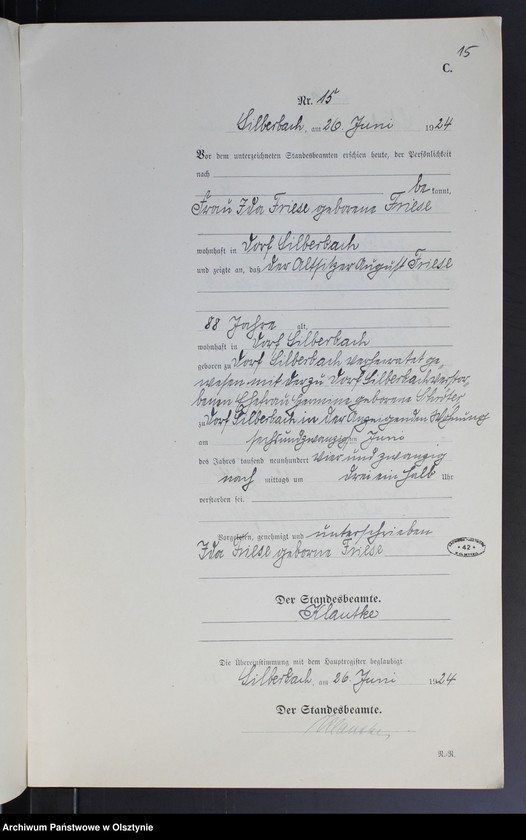 15
C.
Nr. 15
Silberbach, am 26 Juni 1924
Vor dem unterzeichneten Standesbeamten erschien heute, der Persönlichkeit
nach
be kannt,
Frau Ida Friese geborene Friese
wohnhaft in Dorf Silberbach
und zeigte an, daß der Altsitzer August Friese
88 Jahre alt,
wohnhaft in Dorf Silberbach
geboren zu Dorf Silberbach verheiratet ge,
wesen mit der zu Dorf Silberbach verstor,
benen Ehefrau geborene Schröter
zu Dorf Silberbach in der Anzeigenden Wohnung
am sechsundzwanzig ten Juni
des Jahres tausend neunhundert vier und zwanzig
nach mittags um drei ein halb Uhr
verstorben sei.
Vorgelesen, genehmigt und unterschrieben
Ida Friese geborne Friese
42
Der Standesbeamte.
Klautke
Die Übereinstimmung mit dem Hauptregister beglaubigt
Silberbach, am 26. Juni 1924
Der Standesbeamte.
Klautke,
R.-R.
Archiwum Państwowe w Olsztynie
www.szukajwarchiwach.gov.pl